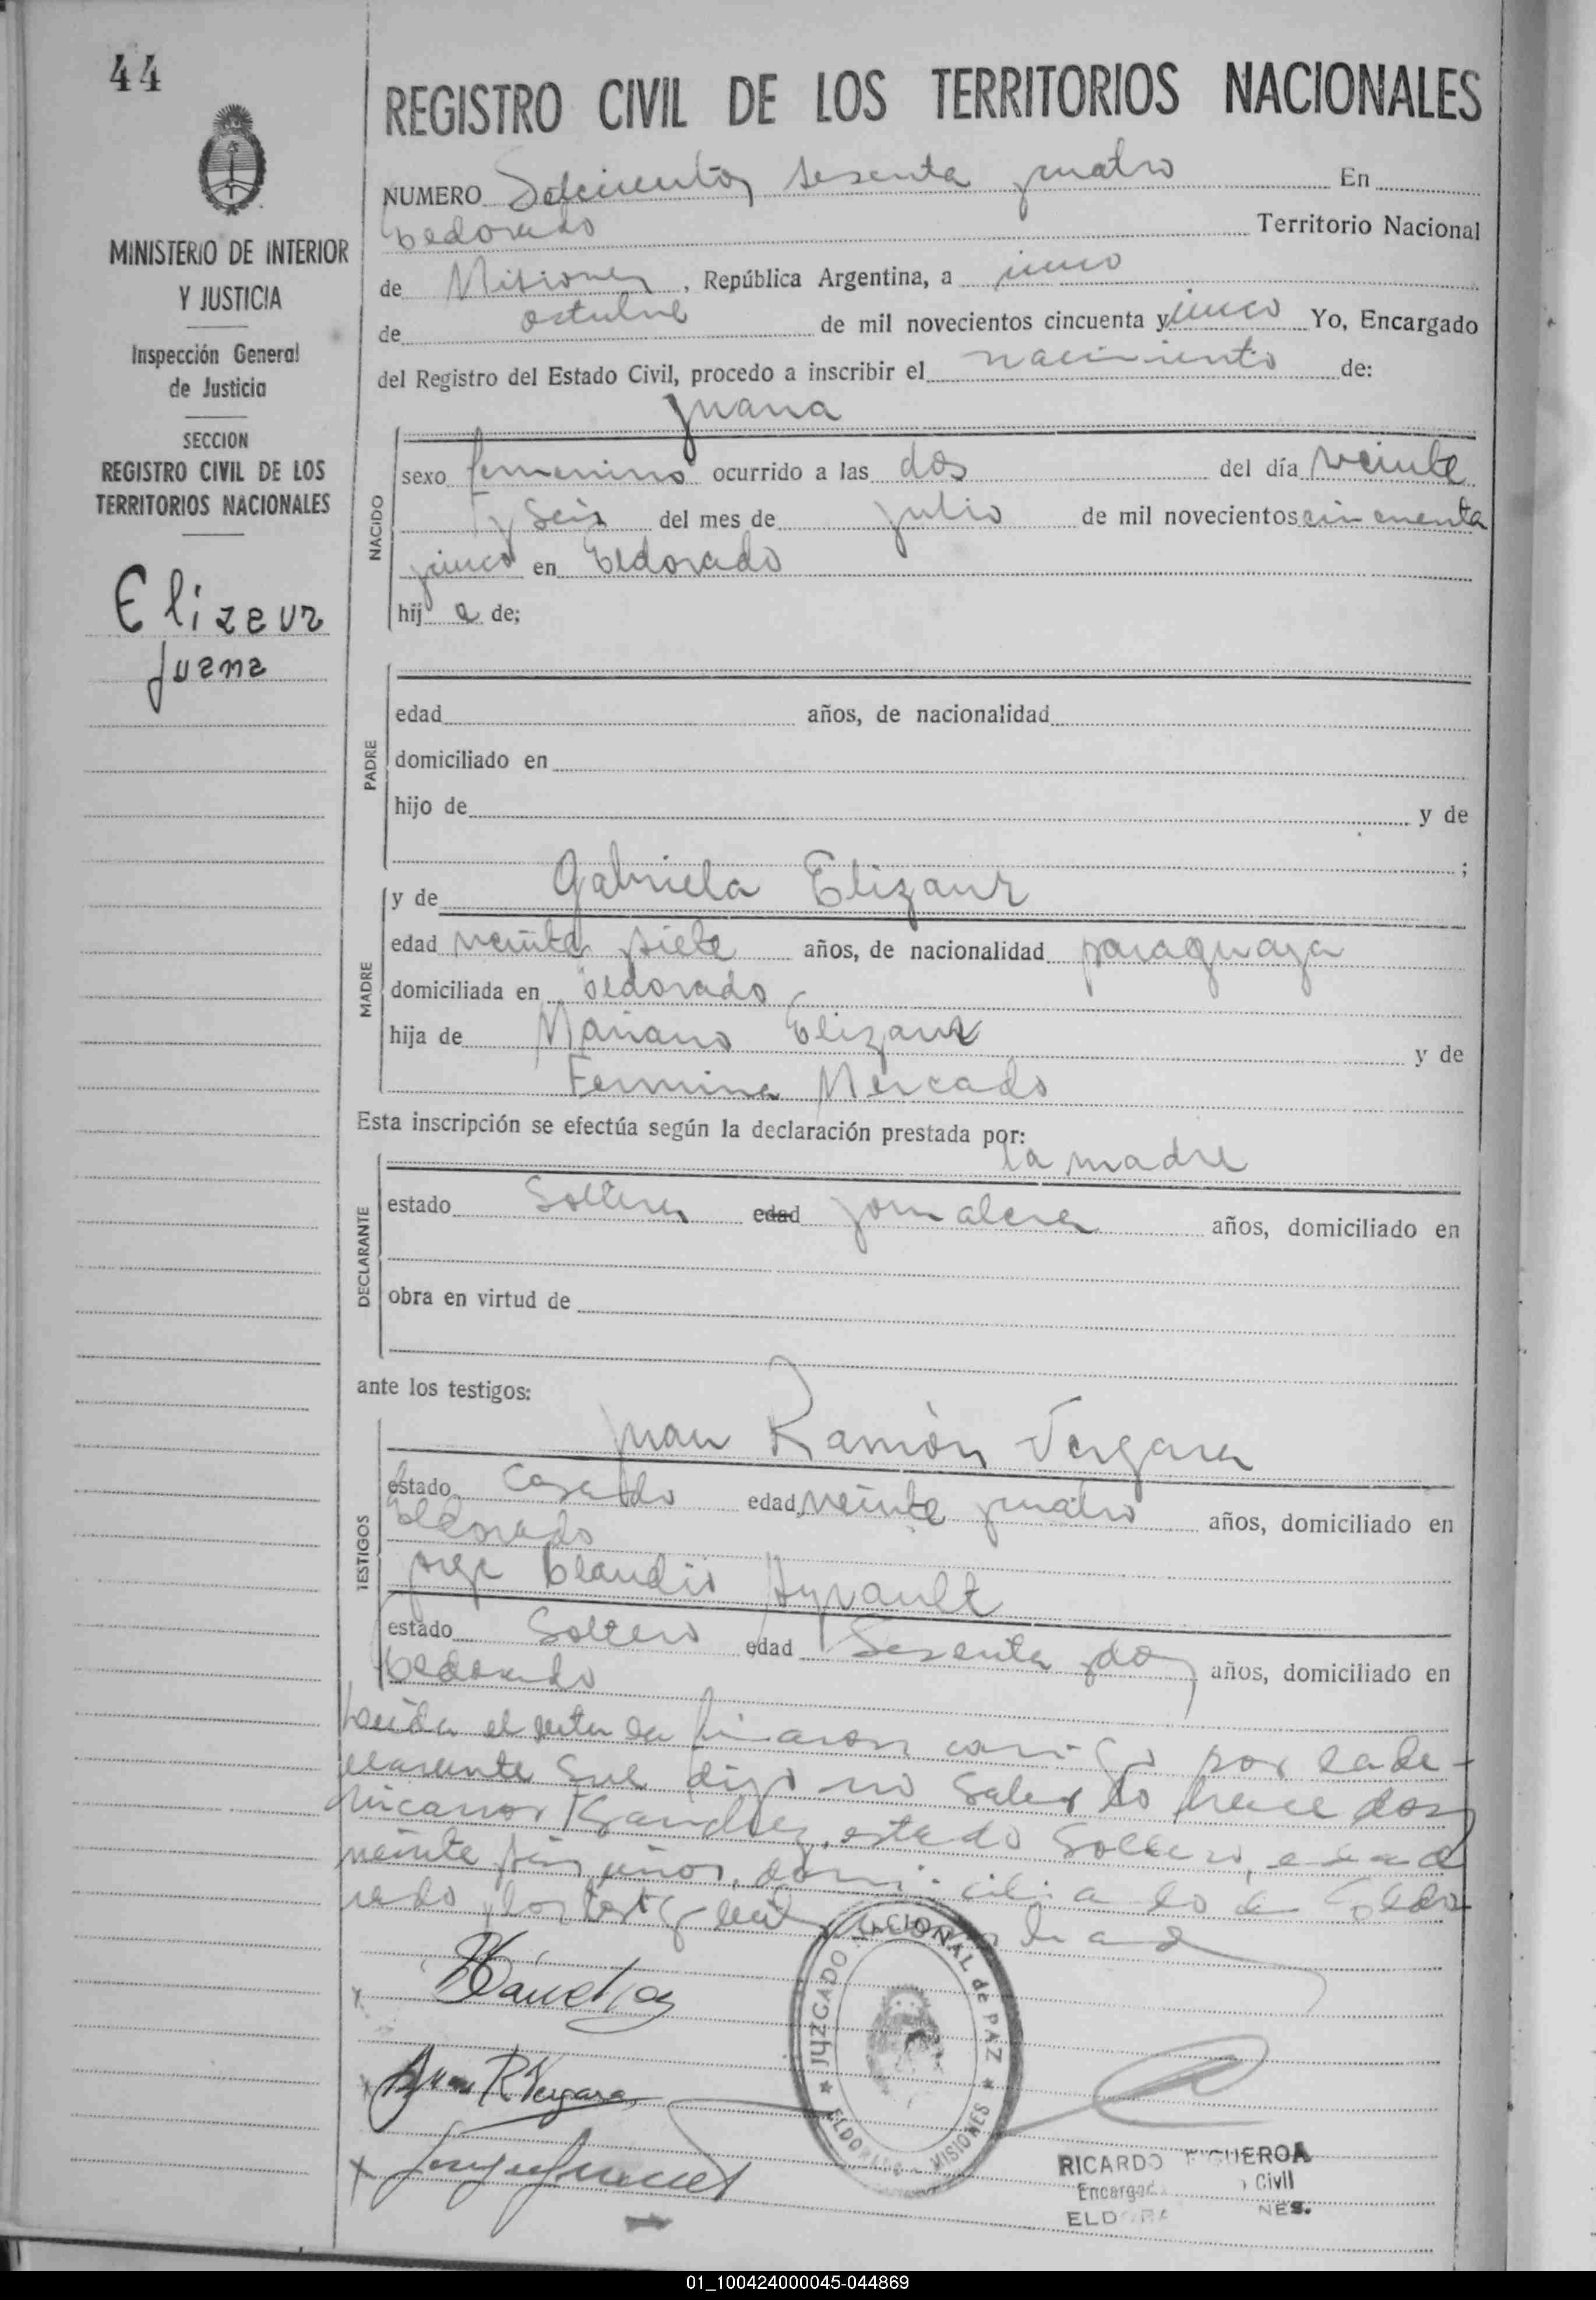 44
REGISTRO CIVIL DE LOS TERRITORIOS NACIONALES
MINISTERIO DE INTERIOR
Y JUSTICIA
Inspección General
de Justicia
SECCION
REGISTRO CIVIL DE LOS
TERRITORIOS NACIONALES
Elizaur
Juana
NUMERO Setecientos sesenta y cuatro En
Eldorado Territorio Nacional
de Misiones, República Argentina, a cinco
de octubre de mil novecientos cincuenta y cinco Yo, Encargado
del Registro del Estado Civil, procedo a inscribir el nacimiento de:
Juana
NACIDO
sexo femenino ocurrido a las dos del día veinte
y seis del mes de julio de mil novecientos cincuenta
y cinco en Eldorado
hij a de;
PADRE
edad años, de nacionalidad
domiciliado en
hijo de y de
;
MADRE
y de Gabriela Elizaur
edad veinte siete años, de nacionalidad paraguaya
domiciliada en Eldorado
hija de Mariano Elizaur y de
Fermina Mercado
Esta inscripción se efectúa según la declaración prestada por:
la madre
DECLARANTE
estado Soltera edad jornalera años, domiciliado en
obra en virtud de
ante los testigos:
Juan Ramón Vergara
TESTIGOS
estado Casado edad veinte y cuatro años, domiciliado en
Eldorado
Jorge Claudio Ayrault
estado Soltero edad Sesenta y dos años, domiciliado en
Eldorado
Leida el acta la firmaron conmigo por la de-
clarante que dijo no saber lo hace don
Nicanor Sanchez, estado Soltero, edad
veinte seis años, domiciliado en Eldo-
rado y los testigos
Sanchez
Juan R Vergara
JUZGADO NACIONAL de PAZ
ELDORADO - MISIONES
RICARDO FIGUEROA
Encargad Civil
ELDORA NES.
01_100424000045-044869